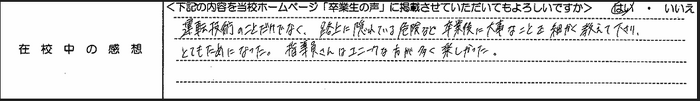 <下記の内容を当校ホームページ「卒業生の声」に掲載させていただいてもよろしいですか> はい ・ いいえ
在校中の感想
運転技術のことだけでなく、路上に隠れている危険など卒業後に大事なことを細かく教えて下さり、
とてもためになった。指導員さんはユニークな方が多く楽しかった。